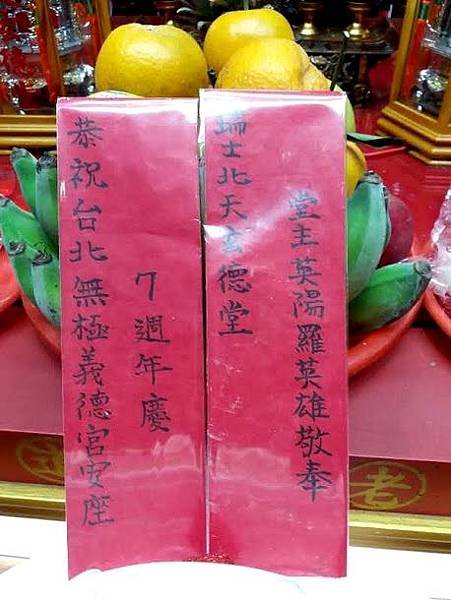 恭祝台北無極義德宮安座
7週年慶
瑞士北天玄德堂
堂主英陽羅英雄敬奉
老